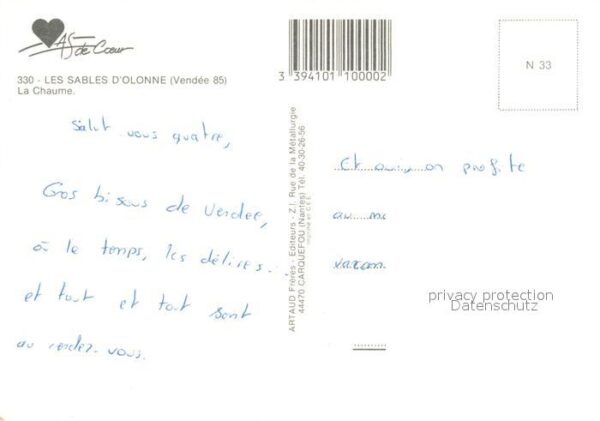 As de Cœur
330 - LES SABLES D'OLONNE (Vendée 85)
La Chaume.
Salut vous quatre,
Gos bisous de Vendée,
où le temps, les délires...
et tout et tout sont
au rendez-vous.
3 394101 100002
ARTAUD Frères - Editeurs - Z.I. Rue de la Métallurgie
44470 CARQUEFOU (Nantes) Tél. 40-30-26-56
Imprimé en C.E.E.
N 33
Et on profite
au
privacy protection
Datenschutz